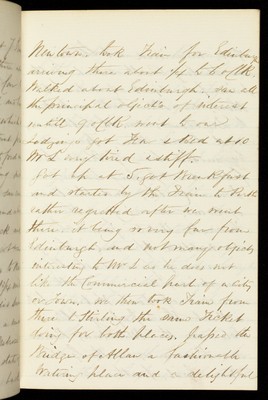 Newtown took Train for Edinburgh
arriving there about ¼ to 6 o'clk.
Walked about Edinburgh. saw all
the principal objects of interest
untill 9 o'clk went to our
Lodgings got Tea & to bed at 10
Mr L very tired & stiff.
Got up at 5. got Breakfast
and started by the Train to Perth
rather regretted after we went
there it being so very far from
Edinburgh, and not many objects
interesting to Mr L as he does not
like the Commercial part of a city
or town. We then took Train from
there to Stirling the same Ticket
doing for both places. passed the
Bridge of Allan a fashionable
Watering place and a delightful